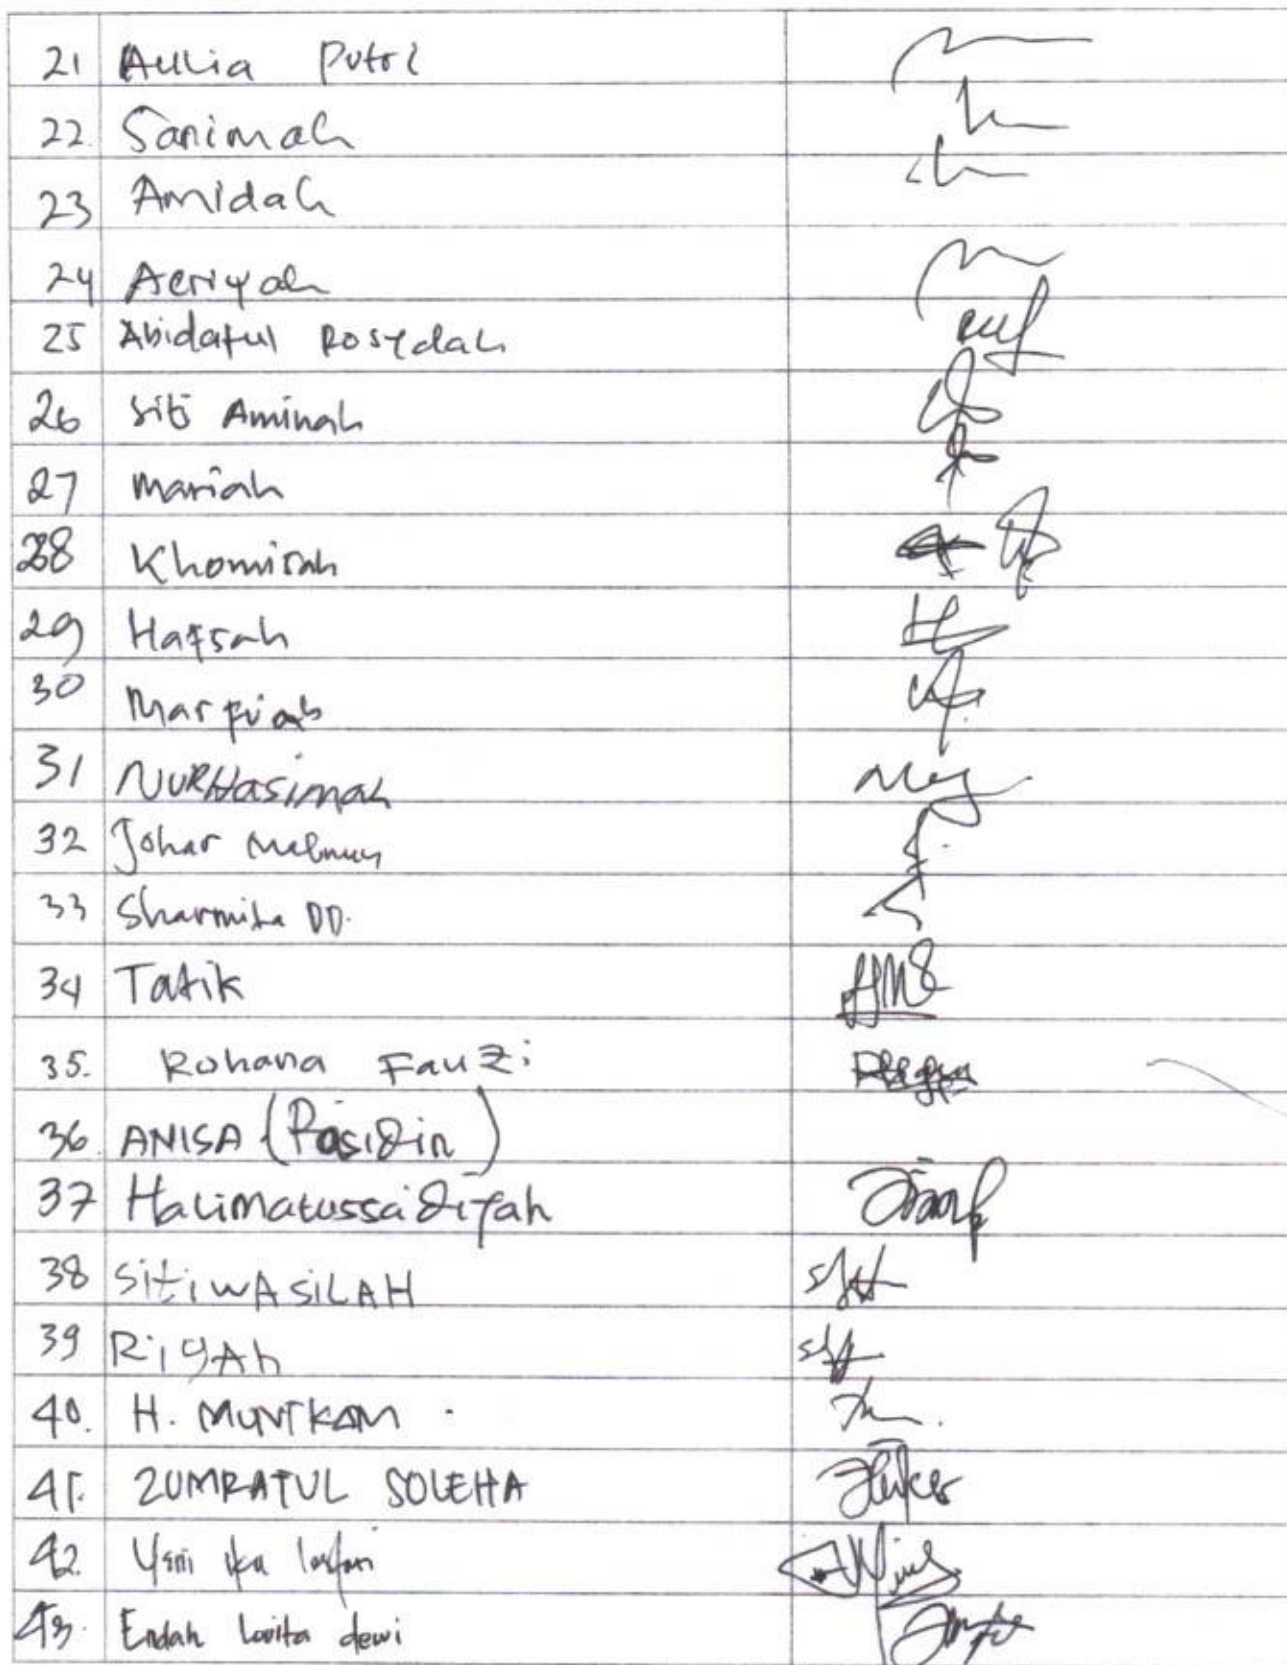 21 Aulia Putri
22. Sanimah
23 Amidah
24 Aeriyah
25 Abidatul Rosydah
26 Siti Aminah
27 Mariah
28 Khomisah
29 Hafsah
30 Marfuah
31 NURHasimah
32 Johar
33 Sharmila DD.
34 Tatik
35. Rohana Fauzi
36. ANISA (Rasidin)
37 Halimatussa'diyah
38 Siti WASILAH
39 RiyAh
40. H. MUNTKAM
41. ZUMRATUL SOLEHA
42. Yeni ika lestari
43. Endah lovita dewi